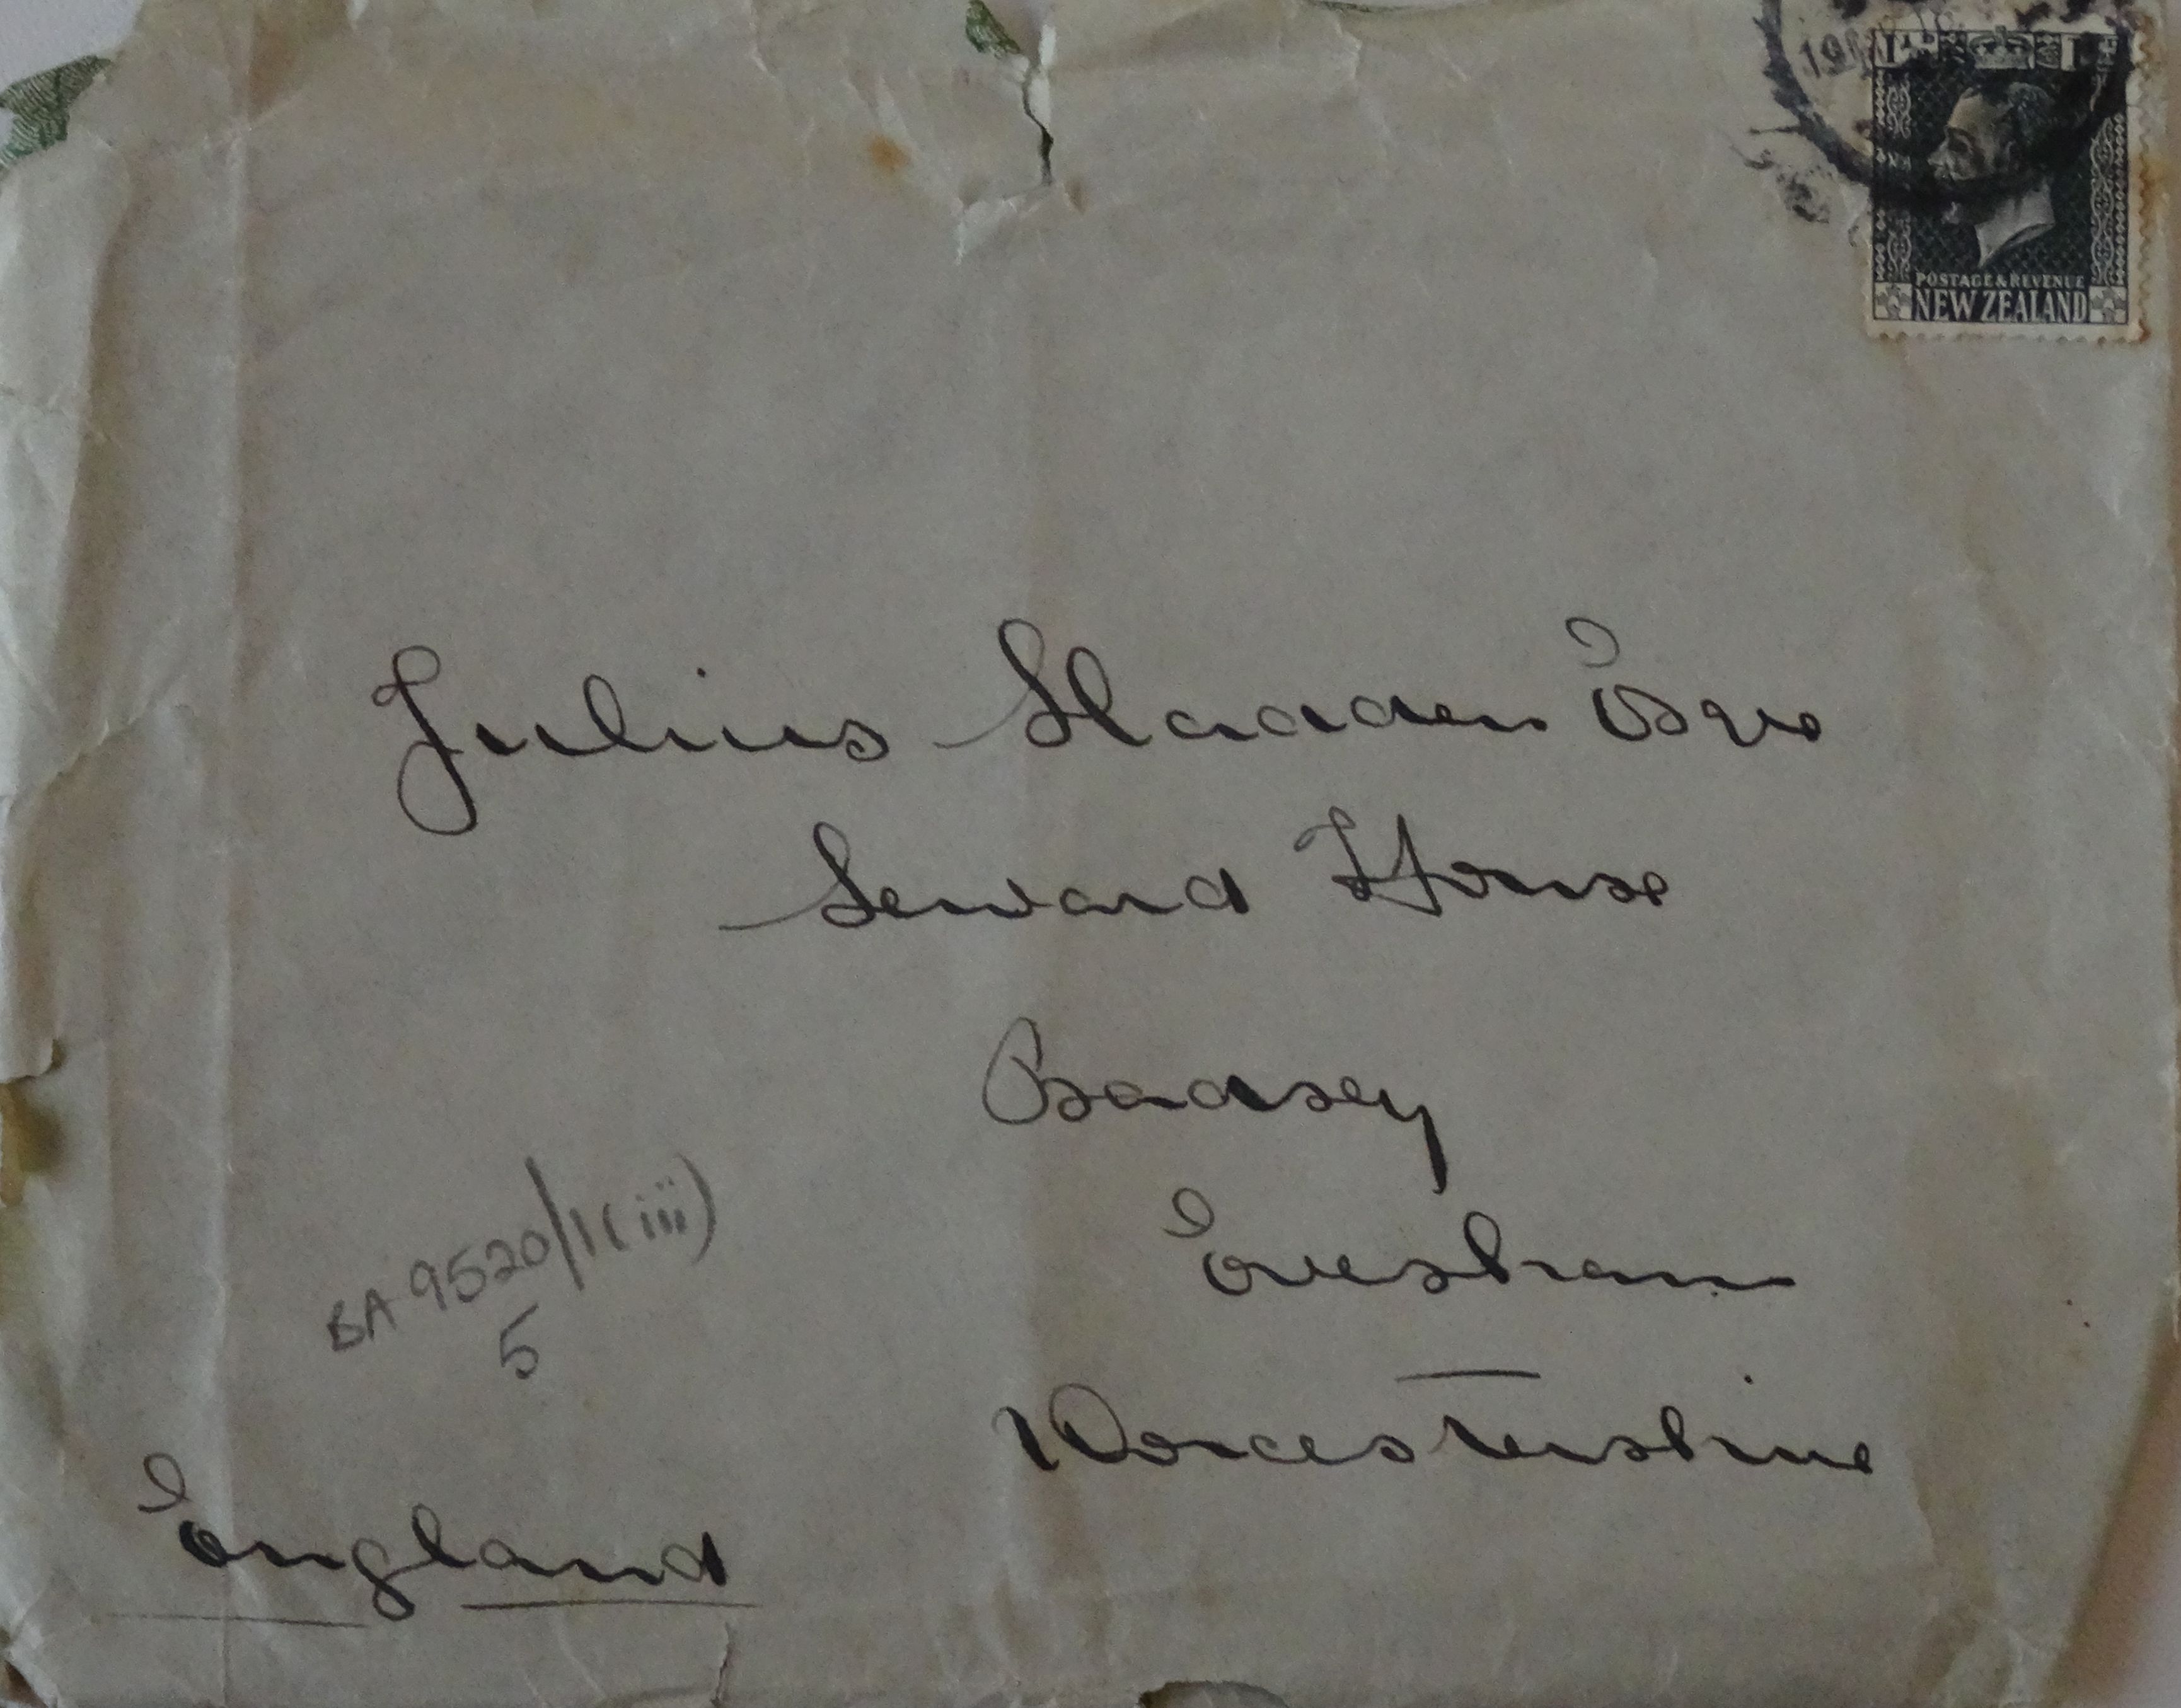 POSTAGE & REVENUE
NEW ZEALAND
Julius Sladden Esqre
Seward House
Badsey
Evesham
Worcestershire
BA 9520/1(iii)
5
England